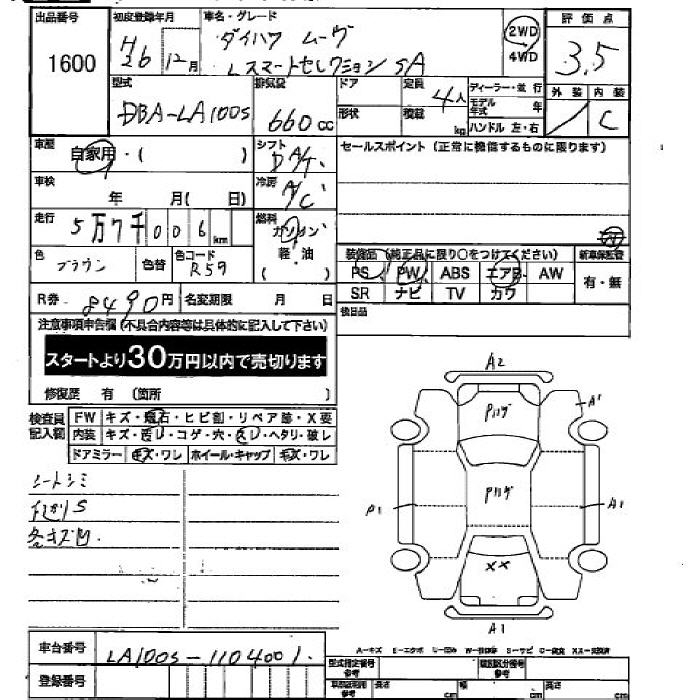 出品番号
1600
初度登録年月
H26 12月
車名・グレード
ダイハツ ムーヴ
Lスマートセレクション SA
2WD
4WD
評価点
3.5
外装 内装
C
型式
DBA-LA100S
排気量
660cc
ドア
形状
定員
4人
積載
kg
ディーラー・並行
モデル年式 年
ハンドル 左・右
車歴
自家用・( )
シフト
DA/T
セールスポイント (正常に機能するものに限ります)
車検
年 月( 日)
冷房
A/C
走行
5万7千006km
燃料
ガソリン
軽・油
( )
色
ブラウン
色替
色コード
R59
装備品 (純正品に限り〇をつけてください)
新車保証書
PS PW ABS エアB AW
有・無
SR ナビ TV カワ
R券
8490円
名変期限 月 日
後日品
注意事項申告欄 (不具合内容等は具体的に記入して下さい)
スタートより30万円以内で売切ります
修復歴 有 (箇所 )
検査員記入範
FW キズ・飛石・ヒビ割・リペア跡・X要
内装 キズ・汚レ・コゲ・穴・色レ・ヘタリ・破レ
ドアミラー キズ・ワレ ホイール・キャップ キズ・ワレ
シートシミ
各キズ凹
A2
A1
Pハゲ
Pハゲ
A1
A1
XX
A1
車台番号
LA100S-1104001
登録番号
A-キズ E-エクボ U-凹み W-補修跡 S-サビ C-腐食 XX-交換済
型式指定番号
参考
類別区分番号
参考
車検証記載
参考
長さ cm
幅 cm
高さ cm